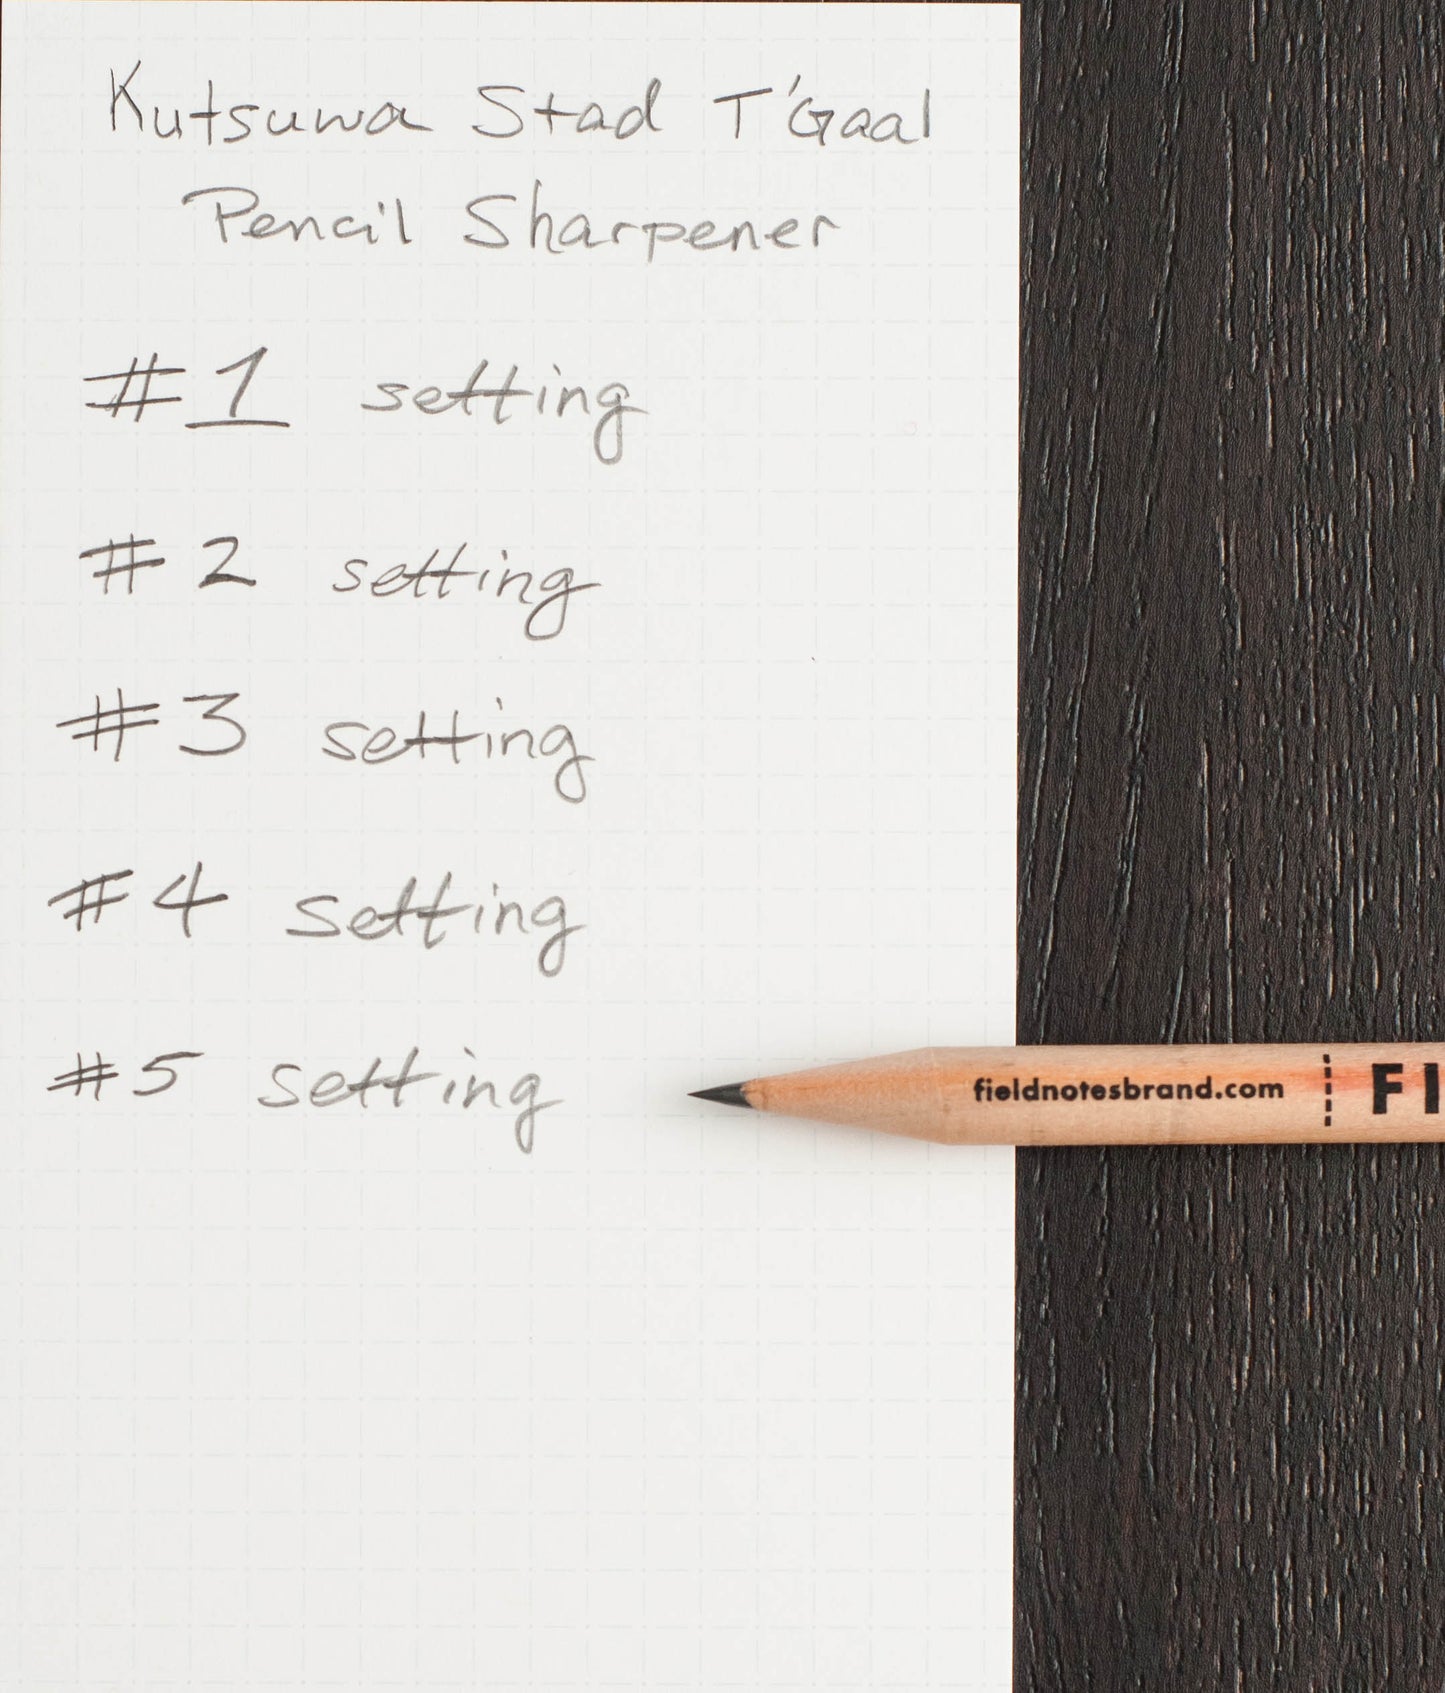 Kutsuwa Stad T'Gaal
Pencil Sharpener
#1 setting
#2 setting
#3 setting
#4 setting
#5 setting
fieldnotesbrand.com FI